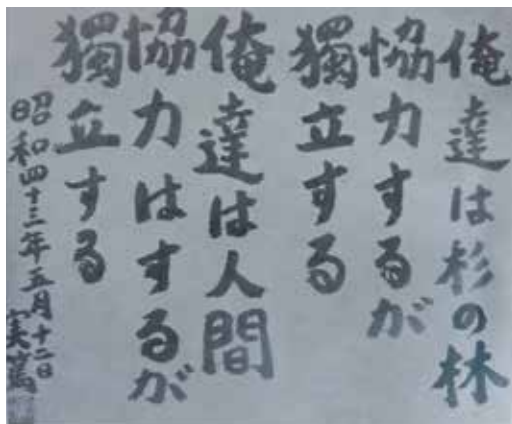 俺達は杉の林
協力するが
獨立する
俺達は人間
協力はするが
獨立する
昭和四十三年五月十二日
実篤